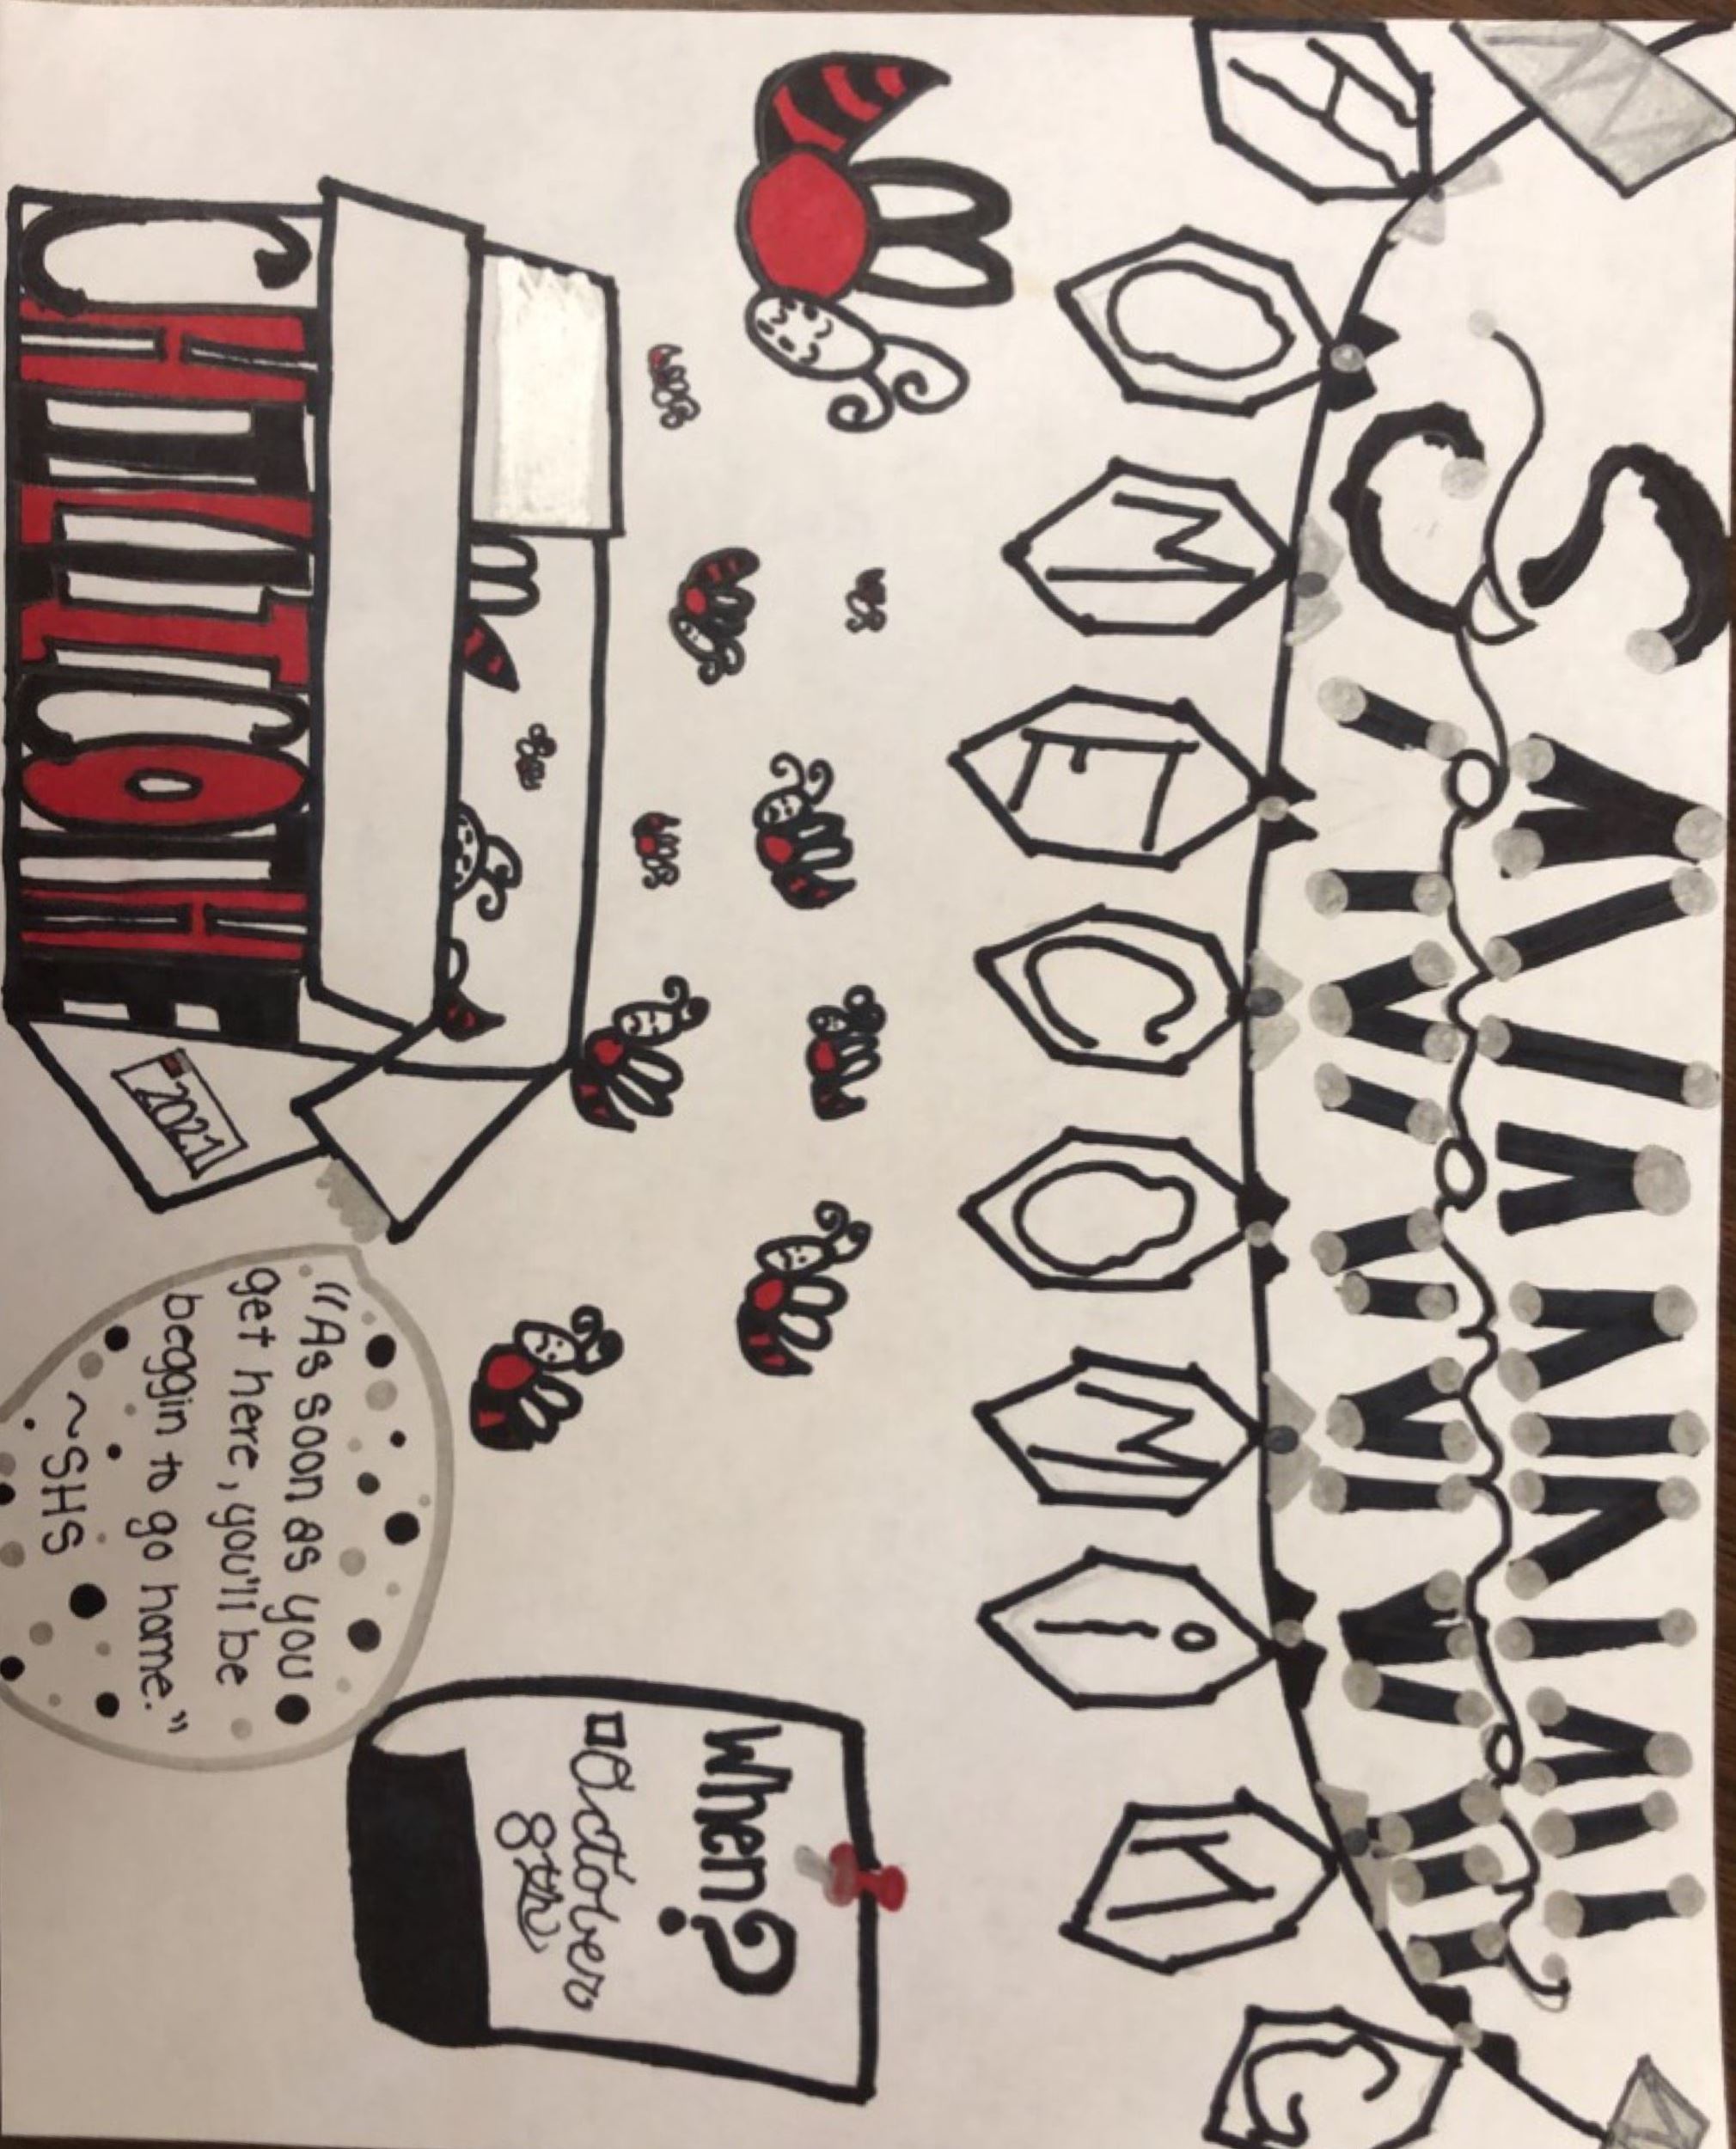 SAVANNAH
HOMECOMiNG
When?
October
8th
CHILLICOTHE
2021
"As soon as you
get here, you'll be
beggin to go home."
~SHS